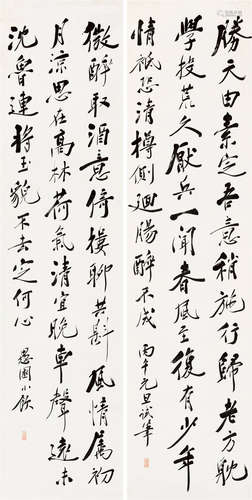 勝天由素定吾意稍施行歸老方耽
學投荒久厭兵一聞春風至復有少年
情祇恐清樽側迴腸醉不成 丙午元旦試筆
微醉取酒意倚樓聊共斟風情屬初
月涼思在高林荷氣清宜晚車聲遠未
沈魯連將玉貌不去定何心 愚園小飲